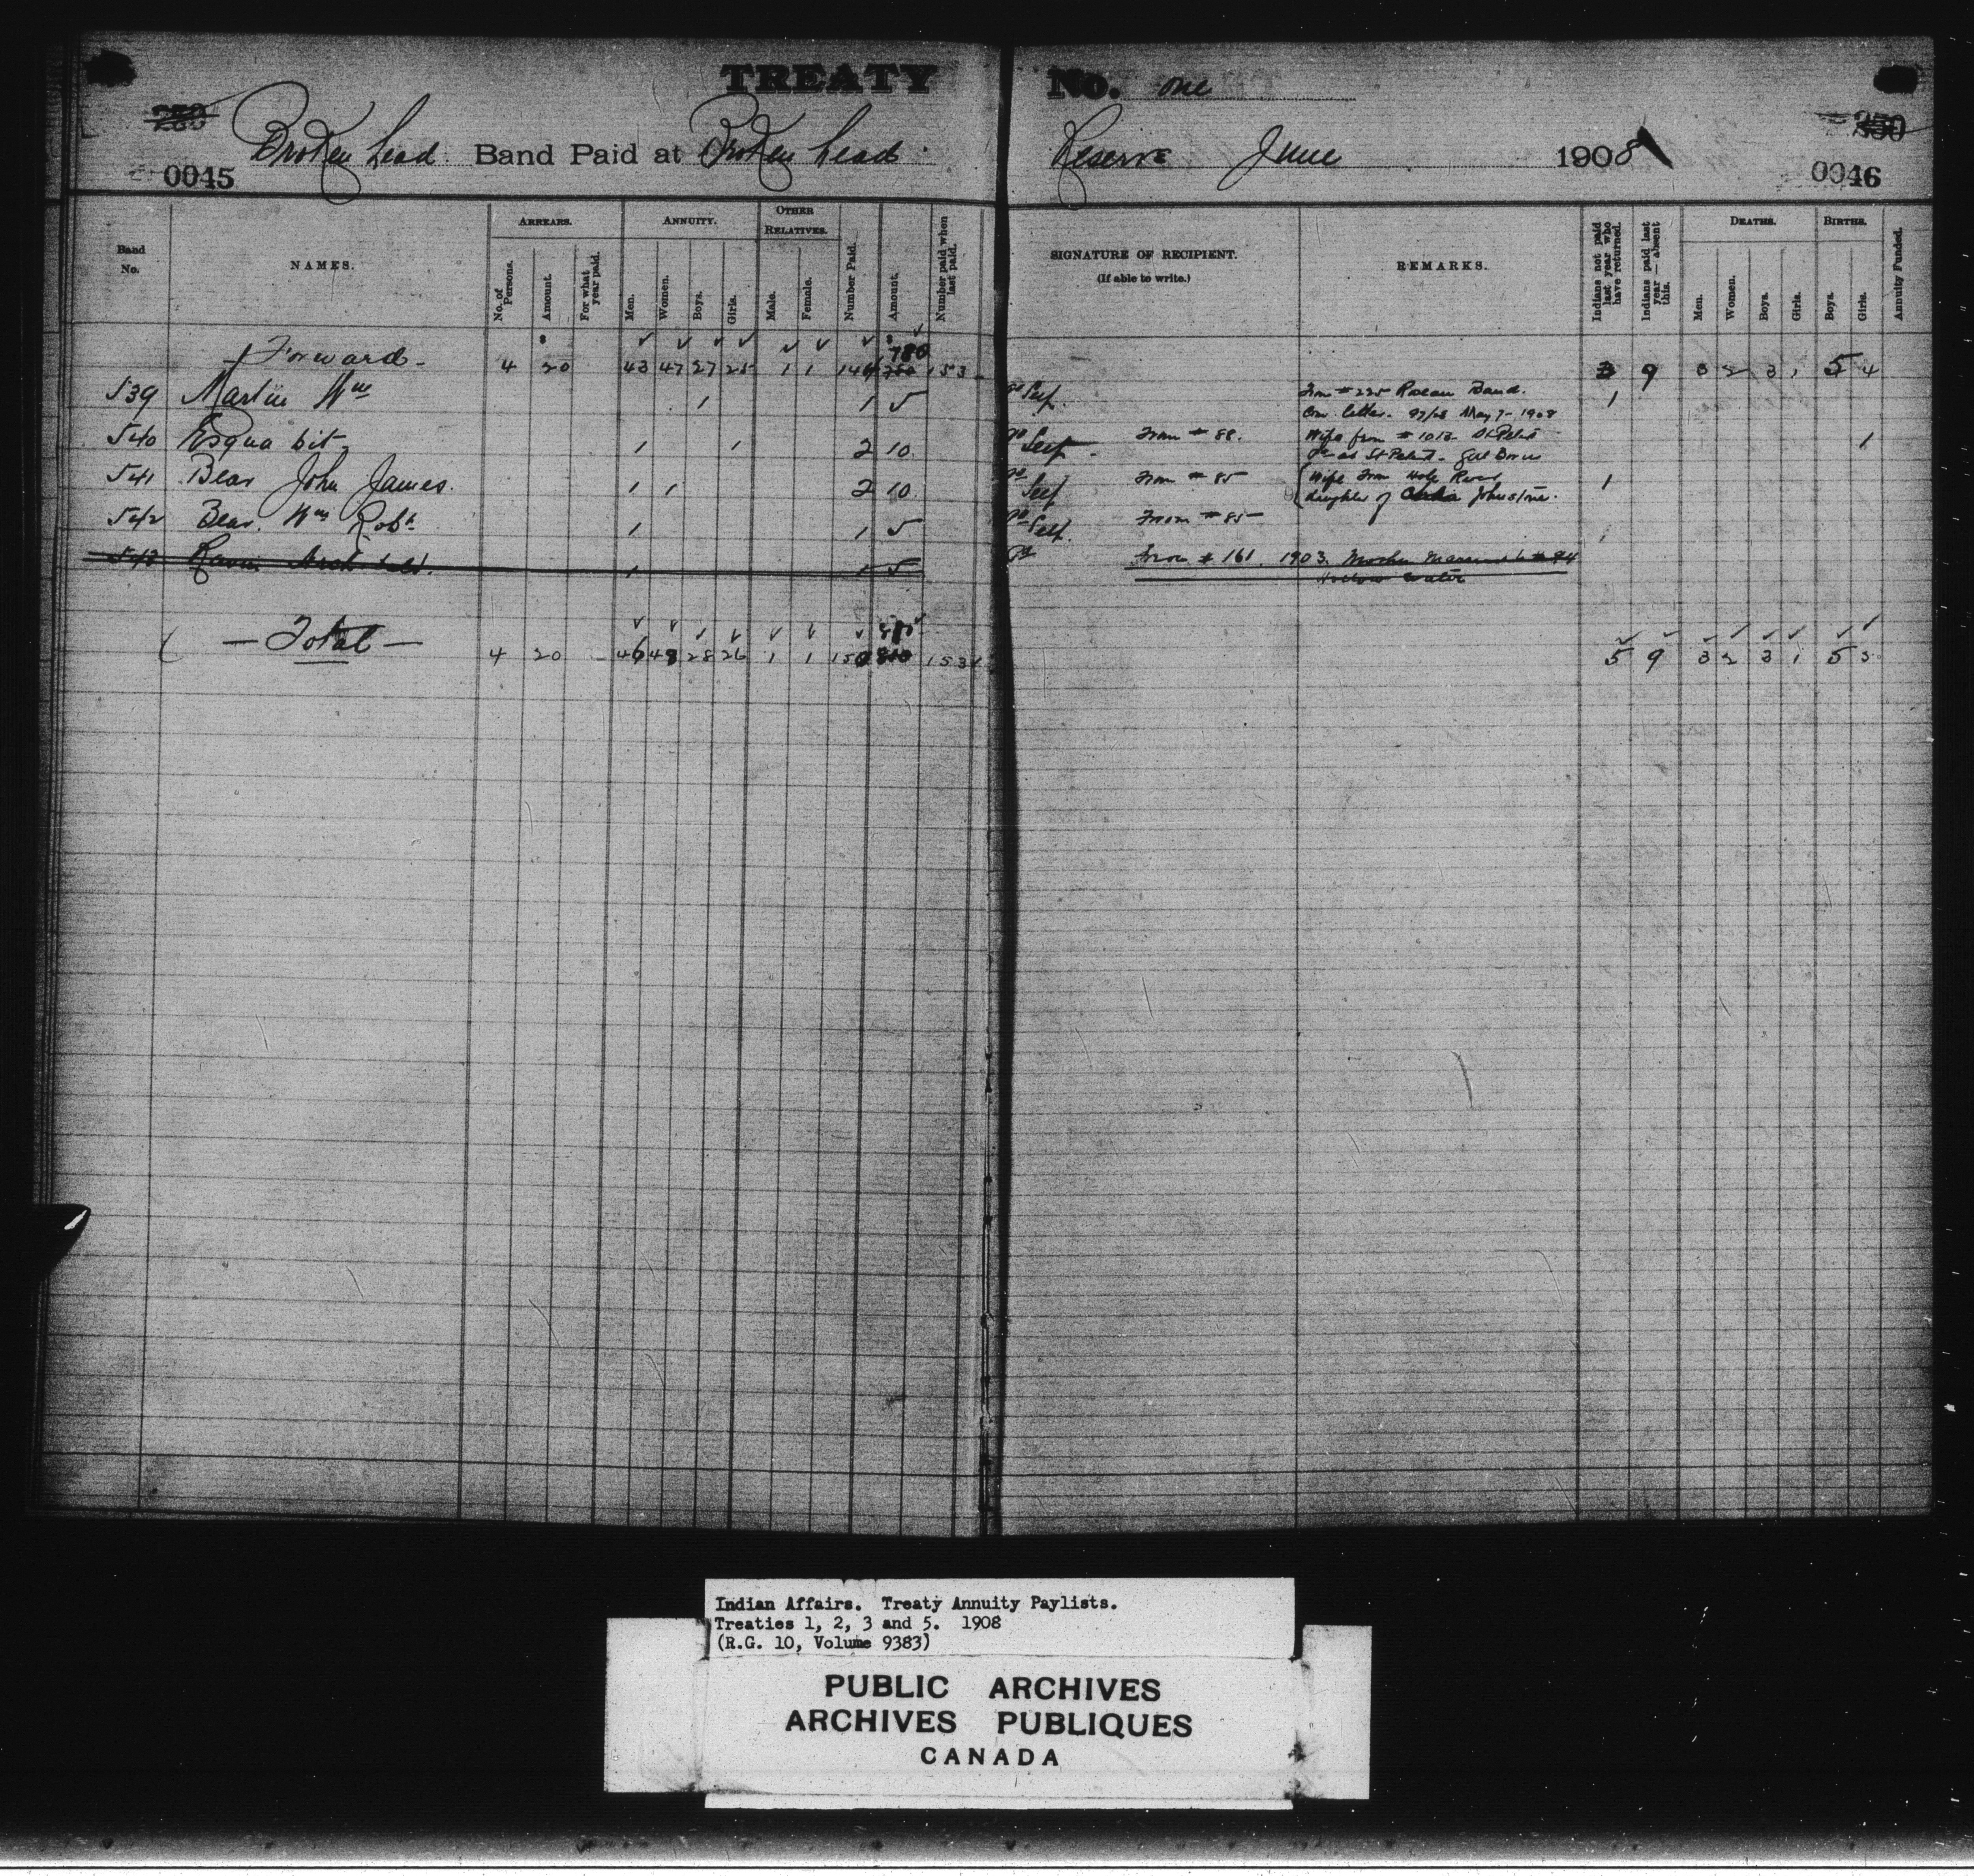 TREATY No. one
250 250
Broken head Band Paid at Broken head Reserve June 1908
0045 0046
Band No. NAMES. ARREARS. ANNUITY. OTHER RELATIVES. Number Paid. Amount. Number paid when last paid. SIGNATURE OF RECIPIENT. (If able to write.) REMARKS. Indians not paid last year who have returned. Indians paid last year — absent this. DEATHS. BIRTHS. Annuity Funded.
No. of Persons. Amount. For what year paid. Men. Women. Boys. Girls. Male. Female. Men. Women. Boys. Girls. Boys. Girls.
Forward 4 20 43 47 27 25 1 1 144 780 153 3 9 3 2 3 1 5 4
539 Martin Wm 1 1 5 Self. From # 225 Roseau Band. 1
Com. letter. 97/28 May 7-1908
540 Esqua bit 1 1 2 10 Self From # 88. Wife from # 1013 St Peters 1
St Peters. Girl Born
541 Bear John James. 1 1 2 10 Self From # 85 Wife from Hole River 1
daughter of Johnstone.
542 Bear. Wm Robt 1 1 5 Self. From # 85
543 1 1 5 From # 161. 1903. Mother married to # 94
Hollow Water
Total 4 20 46 48 28 26 1 1 150 810 153 5 9 3 2 3 1 5 5
Indian Affairs. Treaty Annuity Paylists.
Treaties 1, 2, 3 and 5. 1908
(R.G. 10, Volume 9383)
PUBLIC ARCHIVES
ARCHIVES PUBLIQUES
CANADA